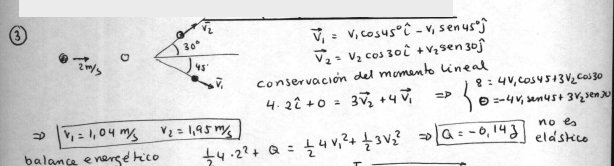 ③
v⃗₂
30°
2 m/s
45°
v⃗₁
v⃗₁ = v₁cos45°î - v₁sen45°ĵ
v⃗₂ = v₂cos30î + v₂sen30ĵ
conservación del momento lineal
4·2î + 0 = 3v⃗₂ + 4v⃗₁ ⇒ { 8 = 4v₁cos45 + 3v₂cos30
0 = -4v₁sen45 + 3v₂sen30
⇒ v₁ = 1,04 m/s v₂ = 1,95 m/s
balance energético ½4·2² + Q = ½4v₁² + ½3v₂² ⇒ Q = -0,14J no es elástico